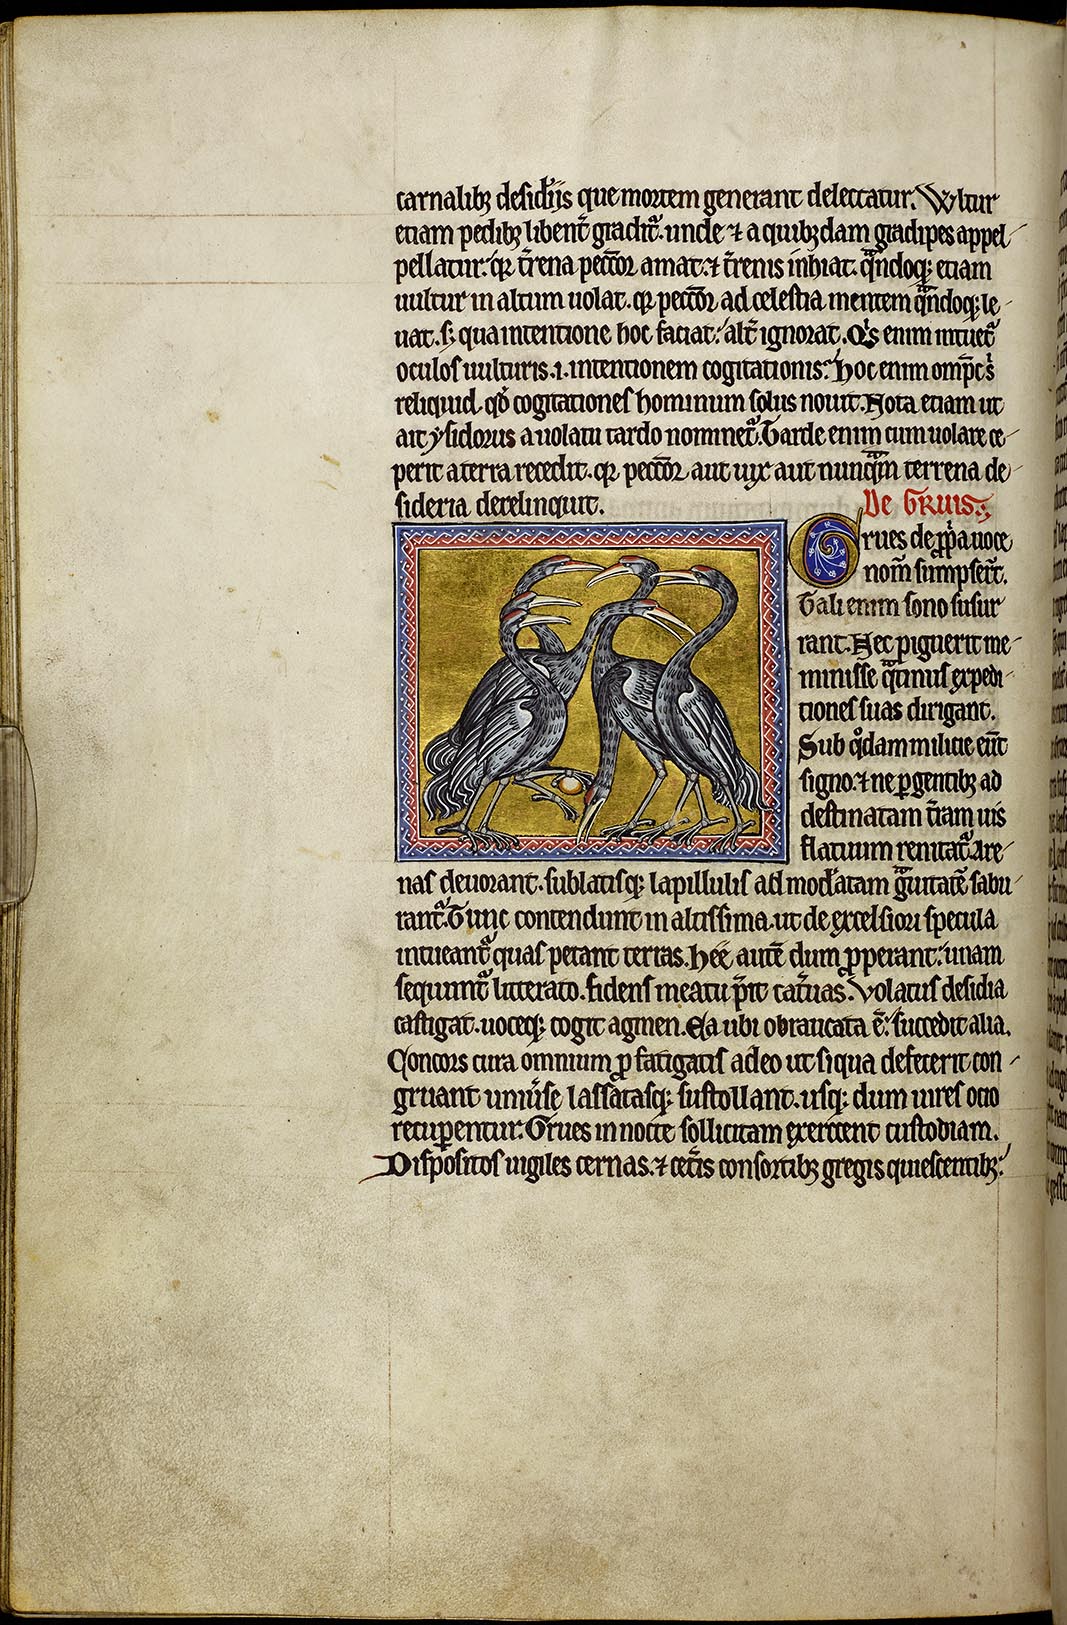 carnalibꝫ desid'ijs que mortem generant delectatur. Wltur
etiam pedibꝫ libent̄ gradit̄. unde ⁊ a quibꝫdam gradipes appel
pellatur. qꝛ t̄rena pecc̄or amat. ⁊ t̄renis inhiat. qᵃndoqꝫ etiam
uultur in altum uolat. qꝛ pecc̄or ad celestia mentem qᵃndoqꝫ le
uat. s; qua intentione hoc faciat: alt̄ ignorat. Qⁱs enim intuet̄
oculos uulturis .i. intentionem cogitationis: hoc enim omp̄cs̄
reliquid. qd̄ cogitationes hominum solus nouit. Nota etiam ut
ait ysidorus a uolatu tardo nominet̄. Tarde enim cum uolare ce
perit a terra recedit. qꝛ pecc̄or aut uix aut nunqᵃm terrena de
sideria derelinquit.
De Gruis.
Grues de ꝓpⁱa uoce
nom̄ sumpser̄t.
Tali enim sono susur
rant. Hec piguerit me
minisse qᵃtinus expedi
tiones suas dirigant.
Sub qᵒdam milicie eūt
signo. ⁊ ne ꝑgentibꝫ ad
destinatam t̄ram uis
flatuum renitat̄ are
nas deuorant. sublatisqꝫ lapillulis ad mod'atam gᵃuitatē sabu
rant̄. Tunc contendunt in altissima. ut de excelsiori specula
intueant̄ quas petant terras. Hee autē dum ꝓperant: unam
sequunt̄ litterato. fidens meatu p̄it cat̄uas. Volatus desidia
castigat. uoceqꝫ cogit agmen. Ea ubi obraucata ē: succedit alia.
Concors cura omnium ꝓ fatigatis adeo ut siqua defecerit con
gruant uniu'se lassatasqꝫ sustollant. usqꝫ dum uires ocio
recuꝑentur. Grues in nocte sollicitam exercent custodiam.
Dispositos uigiles cernas. ⁊ cet̄is consortibꝫ gregis quiescentibꝫ: